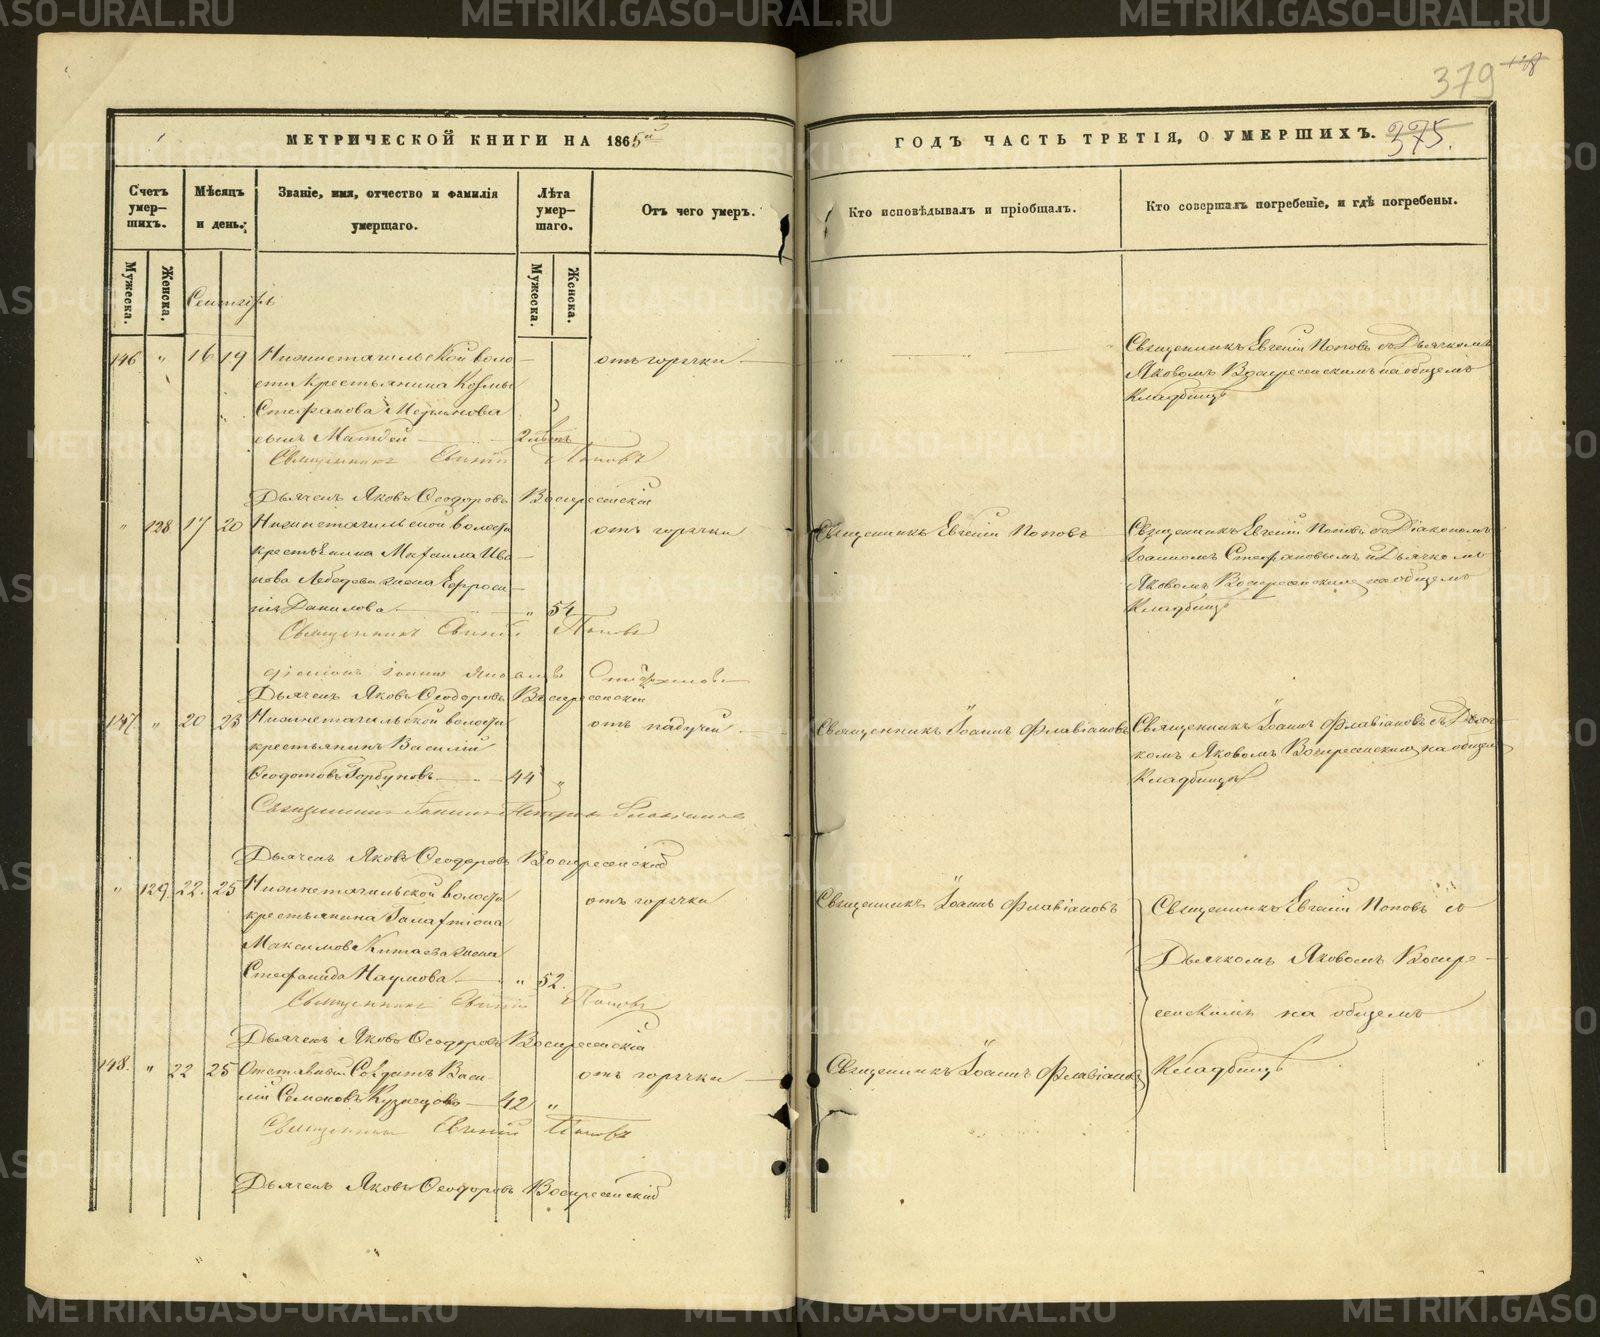 379
МЕТРИЧЕСКОЙ КНИГИ НА 1865й
ГОДЪ ЧАСТЬ ТРЕТІЯ, О УМЕРШИХЪ.
375.
Счетъ умер-шихъ.
Мѣсяцъ и день.
Званіе, имя, отчество и фамилія умершаго.
Лѣта умер-шаго.
Отъ чего умеръ.
Кто исповѣдывалъ и пріобщалъ.
Кто совершалъ погребеніе, и гдѣ погребены.
Мужеска.
Женска.
Мужеска.
Женска.
Сентябрь
146 " 16 19 Нижнетагильской воло- отъ горячки
сти крестьянина Козмы
Стефанова
сынъ Матвей 2 лѣтъ
Священникъ Евгеній Поповъ
Дьячекъ Яковъ Ѳеодоровъ Воскресенскій
Священникъ Евгеній Поповъ съ Дьячкомъ
Яковомъ Воскресенскимъ на общемъ
Кладбищѣ
" 128 17 20 Нижнетагильской волости отъ горячки
крестьянина Михаила Ива-
нова Лебедева жена Ефроси-
нія Данилова " 54
Священникъ Евгеній Поповъ
діаконъ Іоаннъ Стефановъ
Дьячекъ Яковъ Ѳеодоровъ Воскресенскій
Священникъ Евгеній Поповъ
Священникъ Евгеній Поповъ съ Діакономъ
Іоанномъ Стефановымъ и Дьячкомъ
Яковомъ Воскресенскимъ на общемъ
Кладбищѣ
147 " 20 23 Нижнетагильской волости отъ падучей
крестьянинъ Василій
Ѳеодотовъ Горбуновъ 44 "
Священникъ Іоаннъ Петровъ Флавіановъ
Дьячекъ Яковъ Ѳеодоровъ Воскресенскій
Священникъ Іоаннъ Флавіановъ
Священникъ Іоаннъ Флавіановъ съ Дьяч-
комъ Яковомъ Воскресенскимъ на общемъ
Кладбищѣ
" 129 22. 25 Нижнетагильской волости отъ горячки
крестьянина Галактіона
Максимова Китаева жена
Стефанида Наумова " 52.
Священникъ Евгеній Поповъ
Дьячекъ Яковъ Ѳеодоровъ Воскресенскій
Священникъ Іоаннъ Флавіановъ
Священникъ Евгеній Поповъ съ
Дьячкомъ Яковомъ Воскре-
сенскимъ на общемъ
Кладбищѣ
148. " 22 25 Отставный Солдатъ Васи- отъ горячки
лій Семеновъ Кузнецовъ 42 "
Священникъ Евгеній Поповъ
Дьячекъ Яковъ Ѳеодоровъ Воскресенскій
Священникъ Іоаннъ Флавіановъ
METRIKI.GASO-URAL.RU